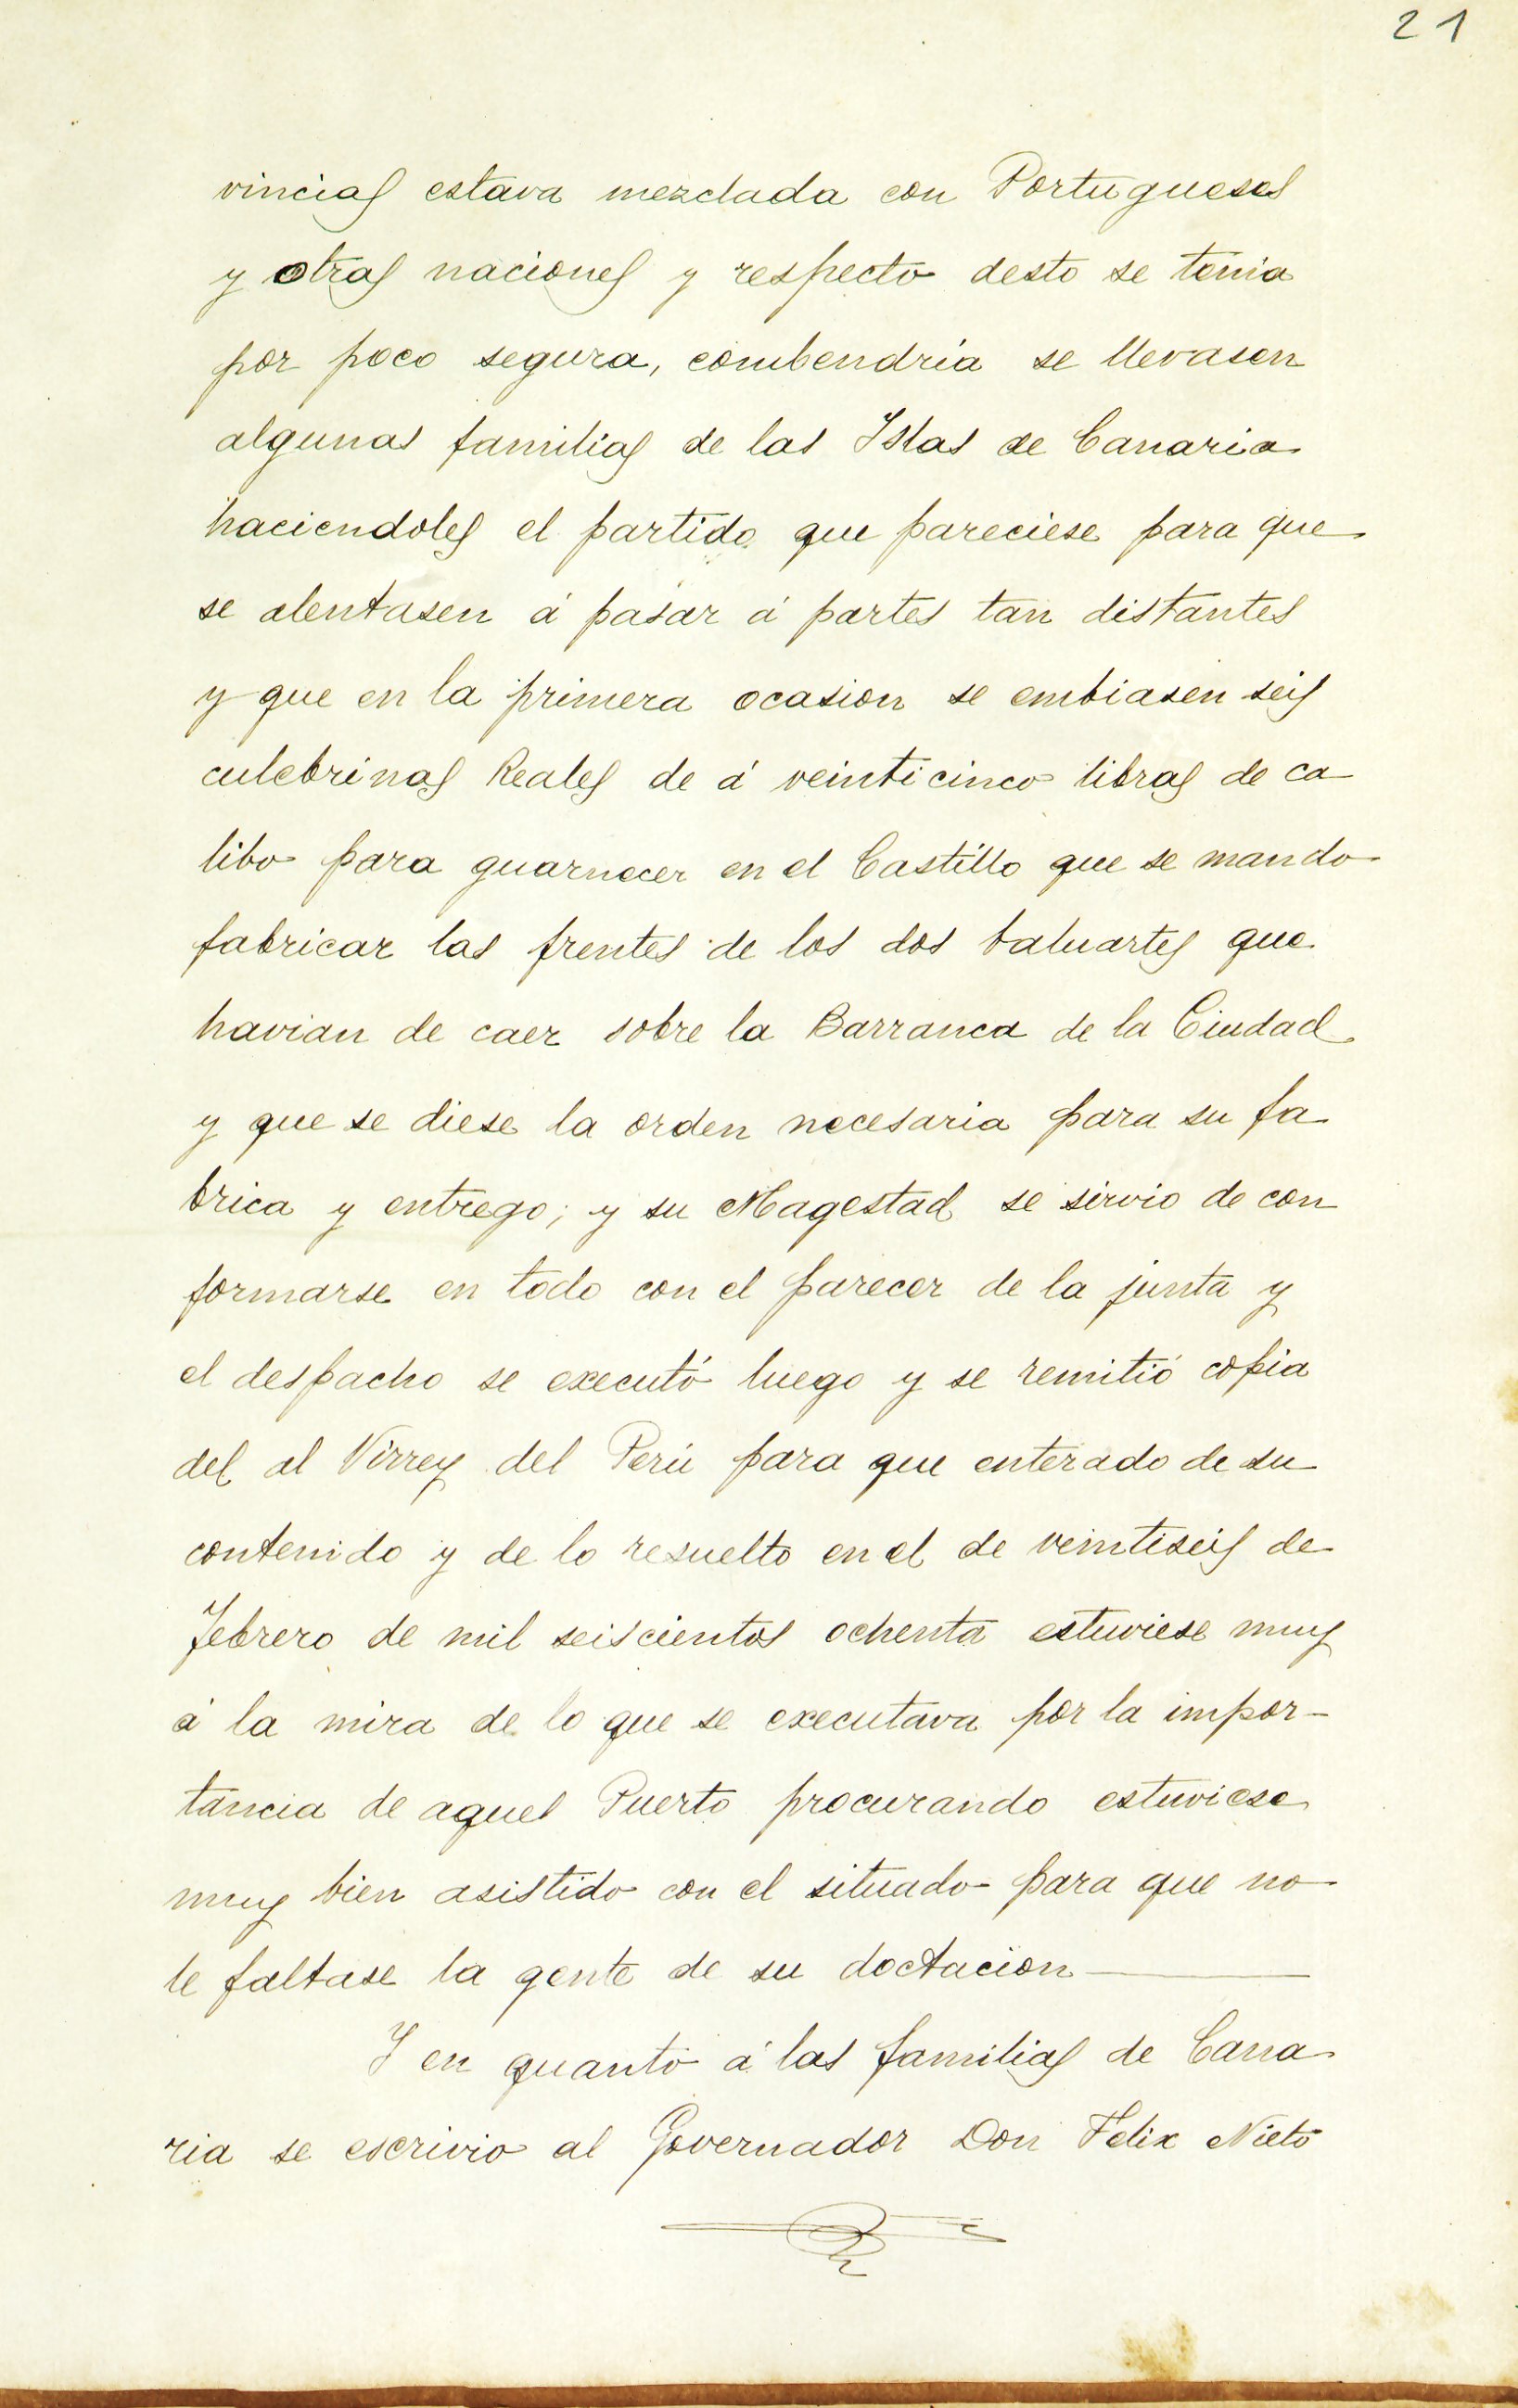 21
vincias estava mezclada con Portugueses
y otras naciones y respecto desto se tenia
por poco segura, combendría se llevasen
algunas familias de las Islas de Canaria
haciendoles el partido que pareciese para que
se alentasen á pasar á partes tan distantes
y que en la primera ocasion se embiasen seis
culebrinas Reales de á veinticinco libras de ca
libo para guarnecer en el Castillo que se mando
fabricar las frentes de los dos baluartes que
havian de caer sobre la Barranca de la Ciudad
y que se diese la orden necesaria para su fa
brica y entrego; y su Magestad se sirvio de con
formarse en todo con el parecer de la junta y
el despacho se executó luego y se remitió copia
del al Virrey del Perú para que enterado de su
contenido y de lo resuelto en el de veintiseis de
Febrero de mil seiscientos ochenta estuviese muy
á la mira de lo que se executava por la impor-
tancia de aquel Puerto procurando estuviese
muy bien asistido con el situado para que no
le faltase la gente de su doctacion
Y en quanto á las familias de Cana
ria se escrivio al Governador Don Felix Nieto